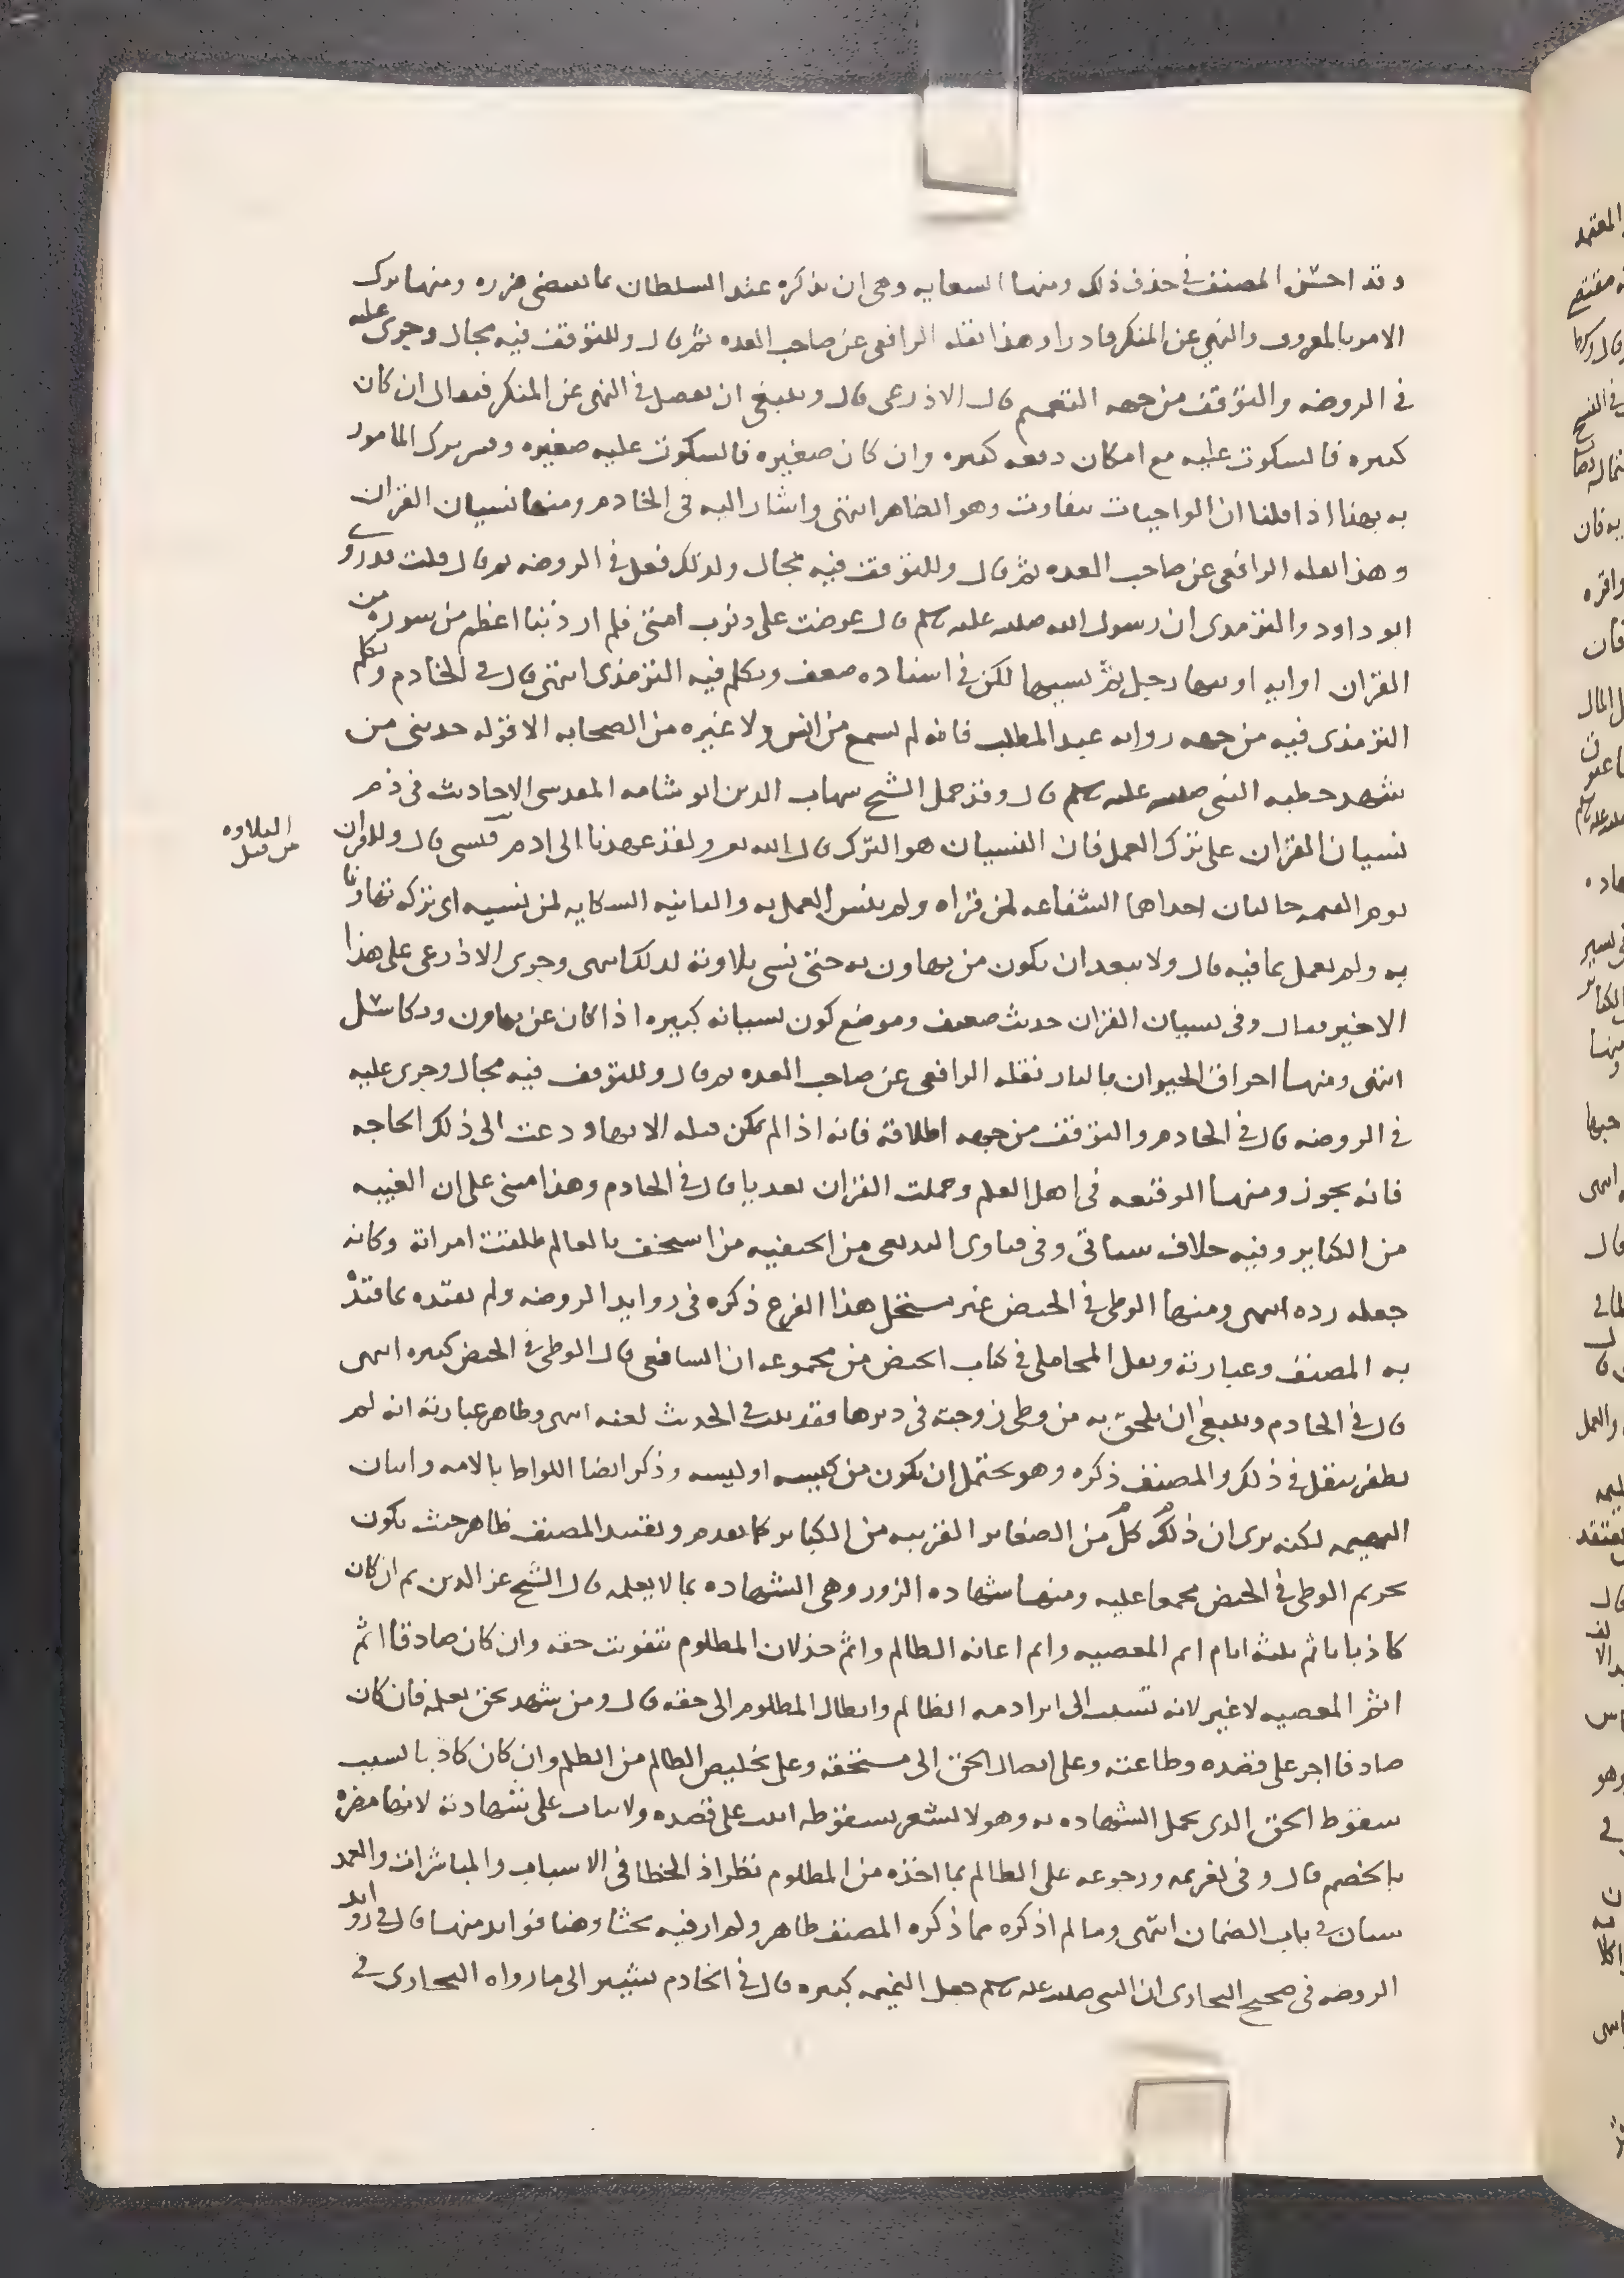 وقد احسن المصنف في حذف ذلك ومنها السعايه وهي ان يذكره عند السلطان بما يقتضي ضرره ومنها ترك
الامر بالمعروف والنهي عن المنكر قادرا وهذا نقله الرافعي عن صاحب العده ثم قال وللتوقف فيه مجال وجرى عليه
في الروضه والتوقف من جهه التعميم قال الاذرعي قال وينبغي ان يفصل في النهي عن المنكر فيقال ان كان
كبيره فالسكوت عليه مع امكان دفعه كبيره وان كان صغيره فالسكوت عليه صغيره ويقس ترك المامور
به بهذا اذا قلنا ان الواجبات تتفاوت وهو الظاهر انتهى واشار اليه في الخادم ومنها نسيان القران
وهذا نقله الرافعي عن صاحب العده ثم قال وللتوقف فيه مجال ولذلك فعل في الروضه ثم قال قلت قد روى
ابو داود والترمذي ان رسول الله صلى الله عليه وسلم قال عرضت علي ذنوب امتي فلم ار ذنبا اعظم من سورة من
القران او ايه اوتيها رجل ثم نسيها لكن في اسناده ضعف وتكلم فيه الترمذي انتهى قال في الخادم وتكلم
الترمذي فيه من جهه روايه عبد المطلب فانه لم يسمع من انس ولا غيره من الصحابه الا قوله حدثني من
شهد خطبه النبي صلى الله عليه وسلم قال وقد حمل الشيخ شهاب الدين ابو شامه المقدسي الاحاديث في ذم
نسيان القران على ترك العمل فان النسيان هو الترك قال الله تعالى ولقد عهدنا الى ادم من قبل فنسي قال وللقران
التلاوه من قبل
يوم القيمه حالتان احداها الشفاعه لمن قراه ولم ينس العمل به والثانيه الشكايه لمن نسيه اي تركه تهاونا
به ولم يعمل بما فيه قال ولا يبعد ان يكون من تهاون به حتى نسي تلاوته لذلك انتهى وجرى الاذرعي على هذا
الاخير فقال وفي نسيان القران حديث ضعيف وموضع كون نسيانه كبيره اذا كان عن تهاون وتكاسل
انتهى ومنها احراق الحيوان بالنار نقله الرافعي عن صاحب العده ثم قال وللتوقف فيه مجال وجرى عليه
في الروضه قال في الخادم والتوقف من جهه اطلاقه فانه اذا لم يمكن قتله الا بها ودعت الى ذلك الحاجه
فانه يجوز ومنها الوقيعه في اهل العلم وحملت القران تعديا قال في الخادم وهذا مبني على ان الغيبه
من الكباير وفيه خلاف سياتي وفي فتاوى البديعي من الحنفيه من استخف بالعالم طلقت امراته وكانه
جعله رده انتهى ومنها الوطي في الحيض غير مستحل هذا الفرع ذكره في زوايد الروضه ولم يقيده بما قيد
به المصنف وعبارته ونقل المحاملي في كتاب الحيض من مجموعه ان الشافعي قال الوطي في الحيض كبيره انتهى
قال في الخادم وينبغي ان يلحق به من وطي زوجته في دبرها فقد ثبت في الحديث لعنه انتهى وظاهر عبارته انه لم
يظفر بنقل في ذلك والمصنف ذكره وهو يحتمل ان يكون من كيسه او ليسه وذكر ايضا اللواط بالامه واتيان
البهيمه لكنه يرى ان ذلك كل من الصغاير القريبه من الكباير كما تقدم وتقييد المصنف ظاهر حيث يكون
تحريم الوطي في الحيض مجمعا عليه ومنها شهاده الزور وهي الشهاده بما لا يعلمه قال الشيخ عز الدين ثم ان كان
كاذبا ياثم ثلثه اثام اثم المعصيه واثم اعانه الظالم واثم خذلان المظلوم بتفويت حقه وان كان صادقا اثم
اثم المعصيه لا غير لانه تسبب الى ابرا ذمه الظالم وايصال المظلوم الى حقه قال ومن شهد بحق يعلمه فان كان
صادقا اجر على قصده وطاعته وعلى ايصال الحق الى مستحقه وعلى تخليص الظالم من الظلم وان كان كاذبا لسبب
سقوط الحق الذي تحمل الشهاده به وهو لا يشعر بسقوطه اثيب على قصده ولا يثاب على شهادته لانها مضره
بالخصم قال وفي تغريمه ورجوعه على الظالم بما اخذه من المظلوم نظر اذ الخطا في الاسباب والمباشرات والعمد
سيان في باب الضمان انتهى وما لم اذكره مما ذكره المصنف ظاهر ولم ار فيه بحثا وهنا فوايد منها قال في زوايد
الروضه في صحيح البخاري ان النبي صلى الله عليه وسلم جعل النميمه كبيره قال في الخادم يشير الى ما رواه البخاري في